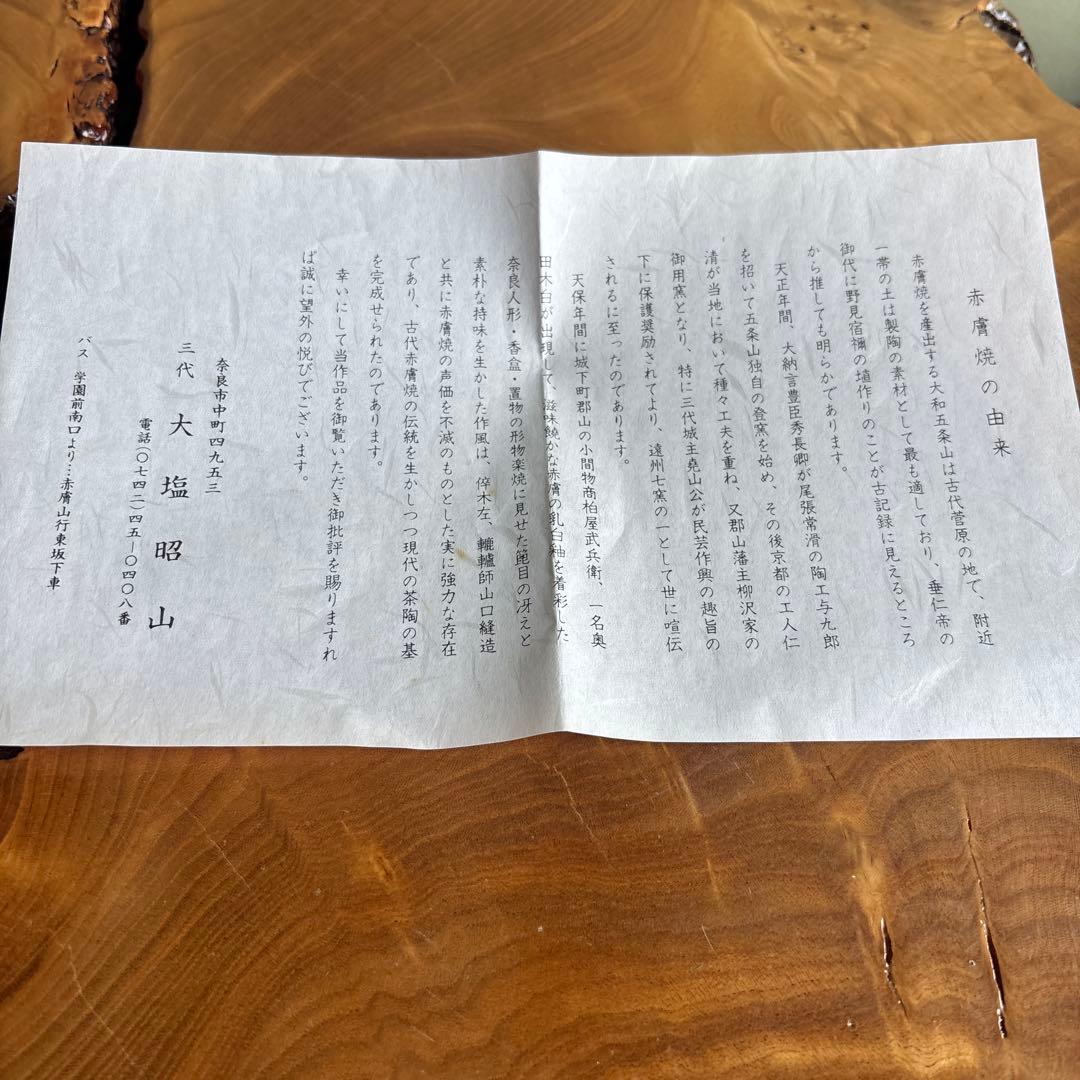 赤膚焼の由来
赤膚焼を産出する大和五条山は古代菅原の地で、附近
一帯の土は製陶の素材として最も適しており、垂仁帝の
御代に野見宿禰の埴作りのことが古記録に見えるところ
から推しても明らかであります。
天正年間、大納言豊臣秀長卿が尾張常滑の陶工与九郎
を招いて五条山独自の登窯を始め、その後京都の工人仁
清が当地において種々工夫を重ね、又郡山藩主柳沢家の
御用窯となり、特に三代城主堯山公が民芸作興の趣旨の
下に保護奨励されてより、遠州七窯の一として世に喧伝
されるに至ったのであります。
天保年間に城下町郡山の小間物商柏屋武兵衛、一名奥
田木白が出現して、滋味饒かな赤膚の乳白釉を着彩した
奈良人形・香盒・置物の形物楽焼に見せた箆目の冴えと
素朴な持味を生かした作風は、倅木左、轆轤師山口縫造
と共に赤膚焼の声価を不滅のものとした実に強力な存在
であり、古代赤膚焼の伝統を生かしつつ現代の茶陶の基
を完成せられたのであります。
幸いにして当作品を御覧いただき御批評を賜りますれ
ば誠に望外の悦びでございます。
奈良市中町四九五三
三代 大塩昭山
電話(〇七四二)四五―〇四〇八番
バス 学園前南口より…赤膚山行東坂下車